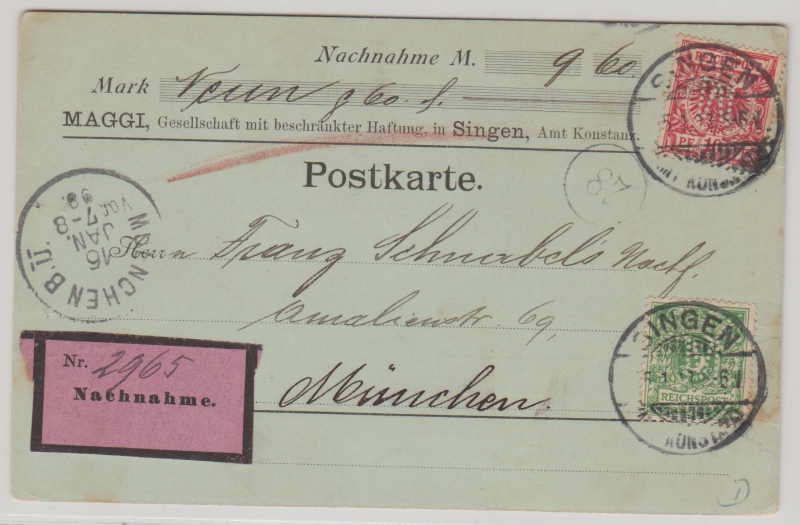 Nachnahme M. 9 60.
Mark Neun 960. f.
MAGGI, Gesellschaft mit beschränkter Haftung, in Singen, Amt Konstanz.
Postkarte.
Herrn Franz Schnabel's Nachf.
Amalienstr. 69,
München.
Nr. 2965
Nachnahme.
MÜNCHEN B.II.
16
JAN.
7-8
Vor.
99.
87
SINGEN
SINGEN
REICHSPOST
1